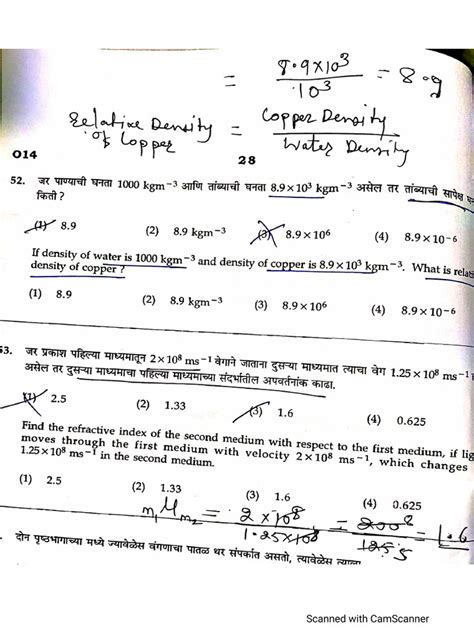 = 8.9×10³ / 10³ = 8.9
Relative Density of Copper = Copper Density / Water Density
014
28
52. जर पाण्याची घनता 1000 kgm−3 आणि तांब्याची घनता 8.9×10³ kgm−3 असेल तर तांब्याची सापेक्ष
किती ?
(1) 8.9 (2) 8.9 kgm−3 (3) 8.9×10⁶ (4) 8.9×10−6
If density of water is 1000 kgm−3 and density of copper is 8.9×10³ kgm−3. What is
density of copper ?
(1) 8.9 (2) 8.9 kgm−3 (3) 8.9×10⁶ (4) 8.9×10−6
53. जर प्रकाश पहिल्या माध्यमातून 2×10⁸ ms−1 वेगाने जाताना दुसऱ्या माध्यमात त्याचा वेग 1.25×10⁸ ms−1
असेल तर दुसऱ्या माध्यमाचा पहिल्या माध्यमाच्या संदर्भातील अपवर्तनांक काढा.
(1) 2.5 (2) 1.33 (3) 1.6 (4) 0.625
Find the refractive index of the second medium with respect to the first medium, if
moves through the first medium with velocity 2×10⁸ ms−1, which changes
1.25×10⁸ ms−1 in the second medium.
(1) 2.5 (2) 1.33 (3) 1.6 (4) 0.625
m₁ μ m₂ = 2×10⁸ / 1.25×10⁸ = = 1.6
दोन पृष्ठभागाच्या मध्ये ज्यावेळेस वंगणाचा पातळ थर संपर्कात असतो, त्यावेळेस
Scanned with CamScanner